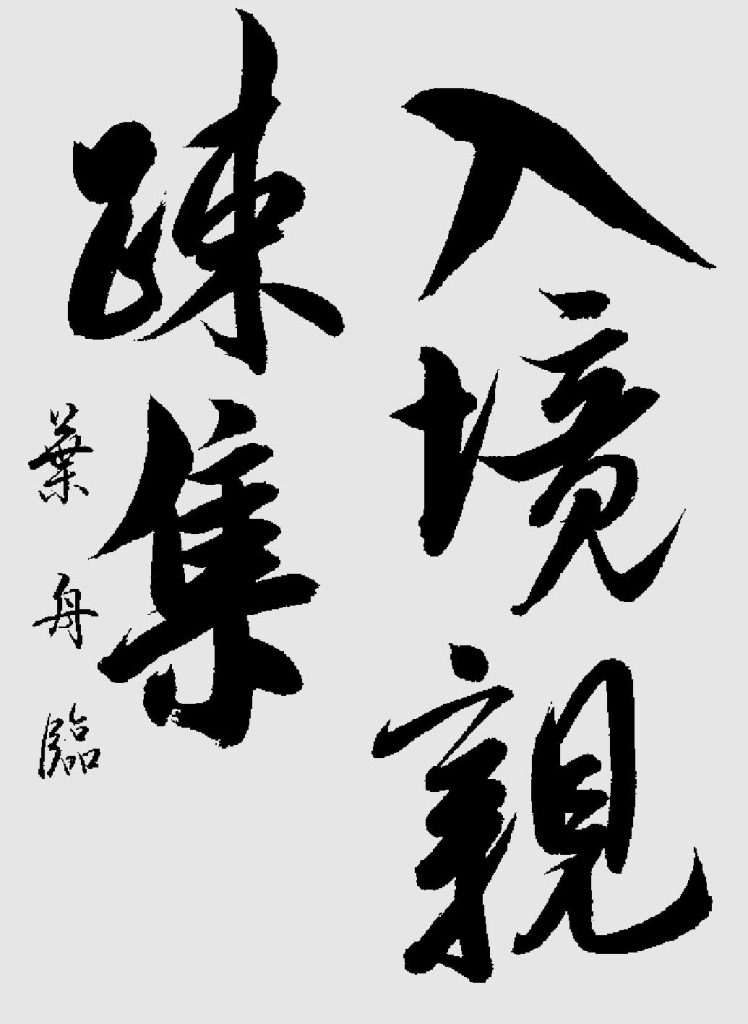 入境親
疎集
葉舟臨